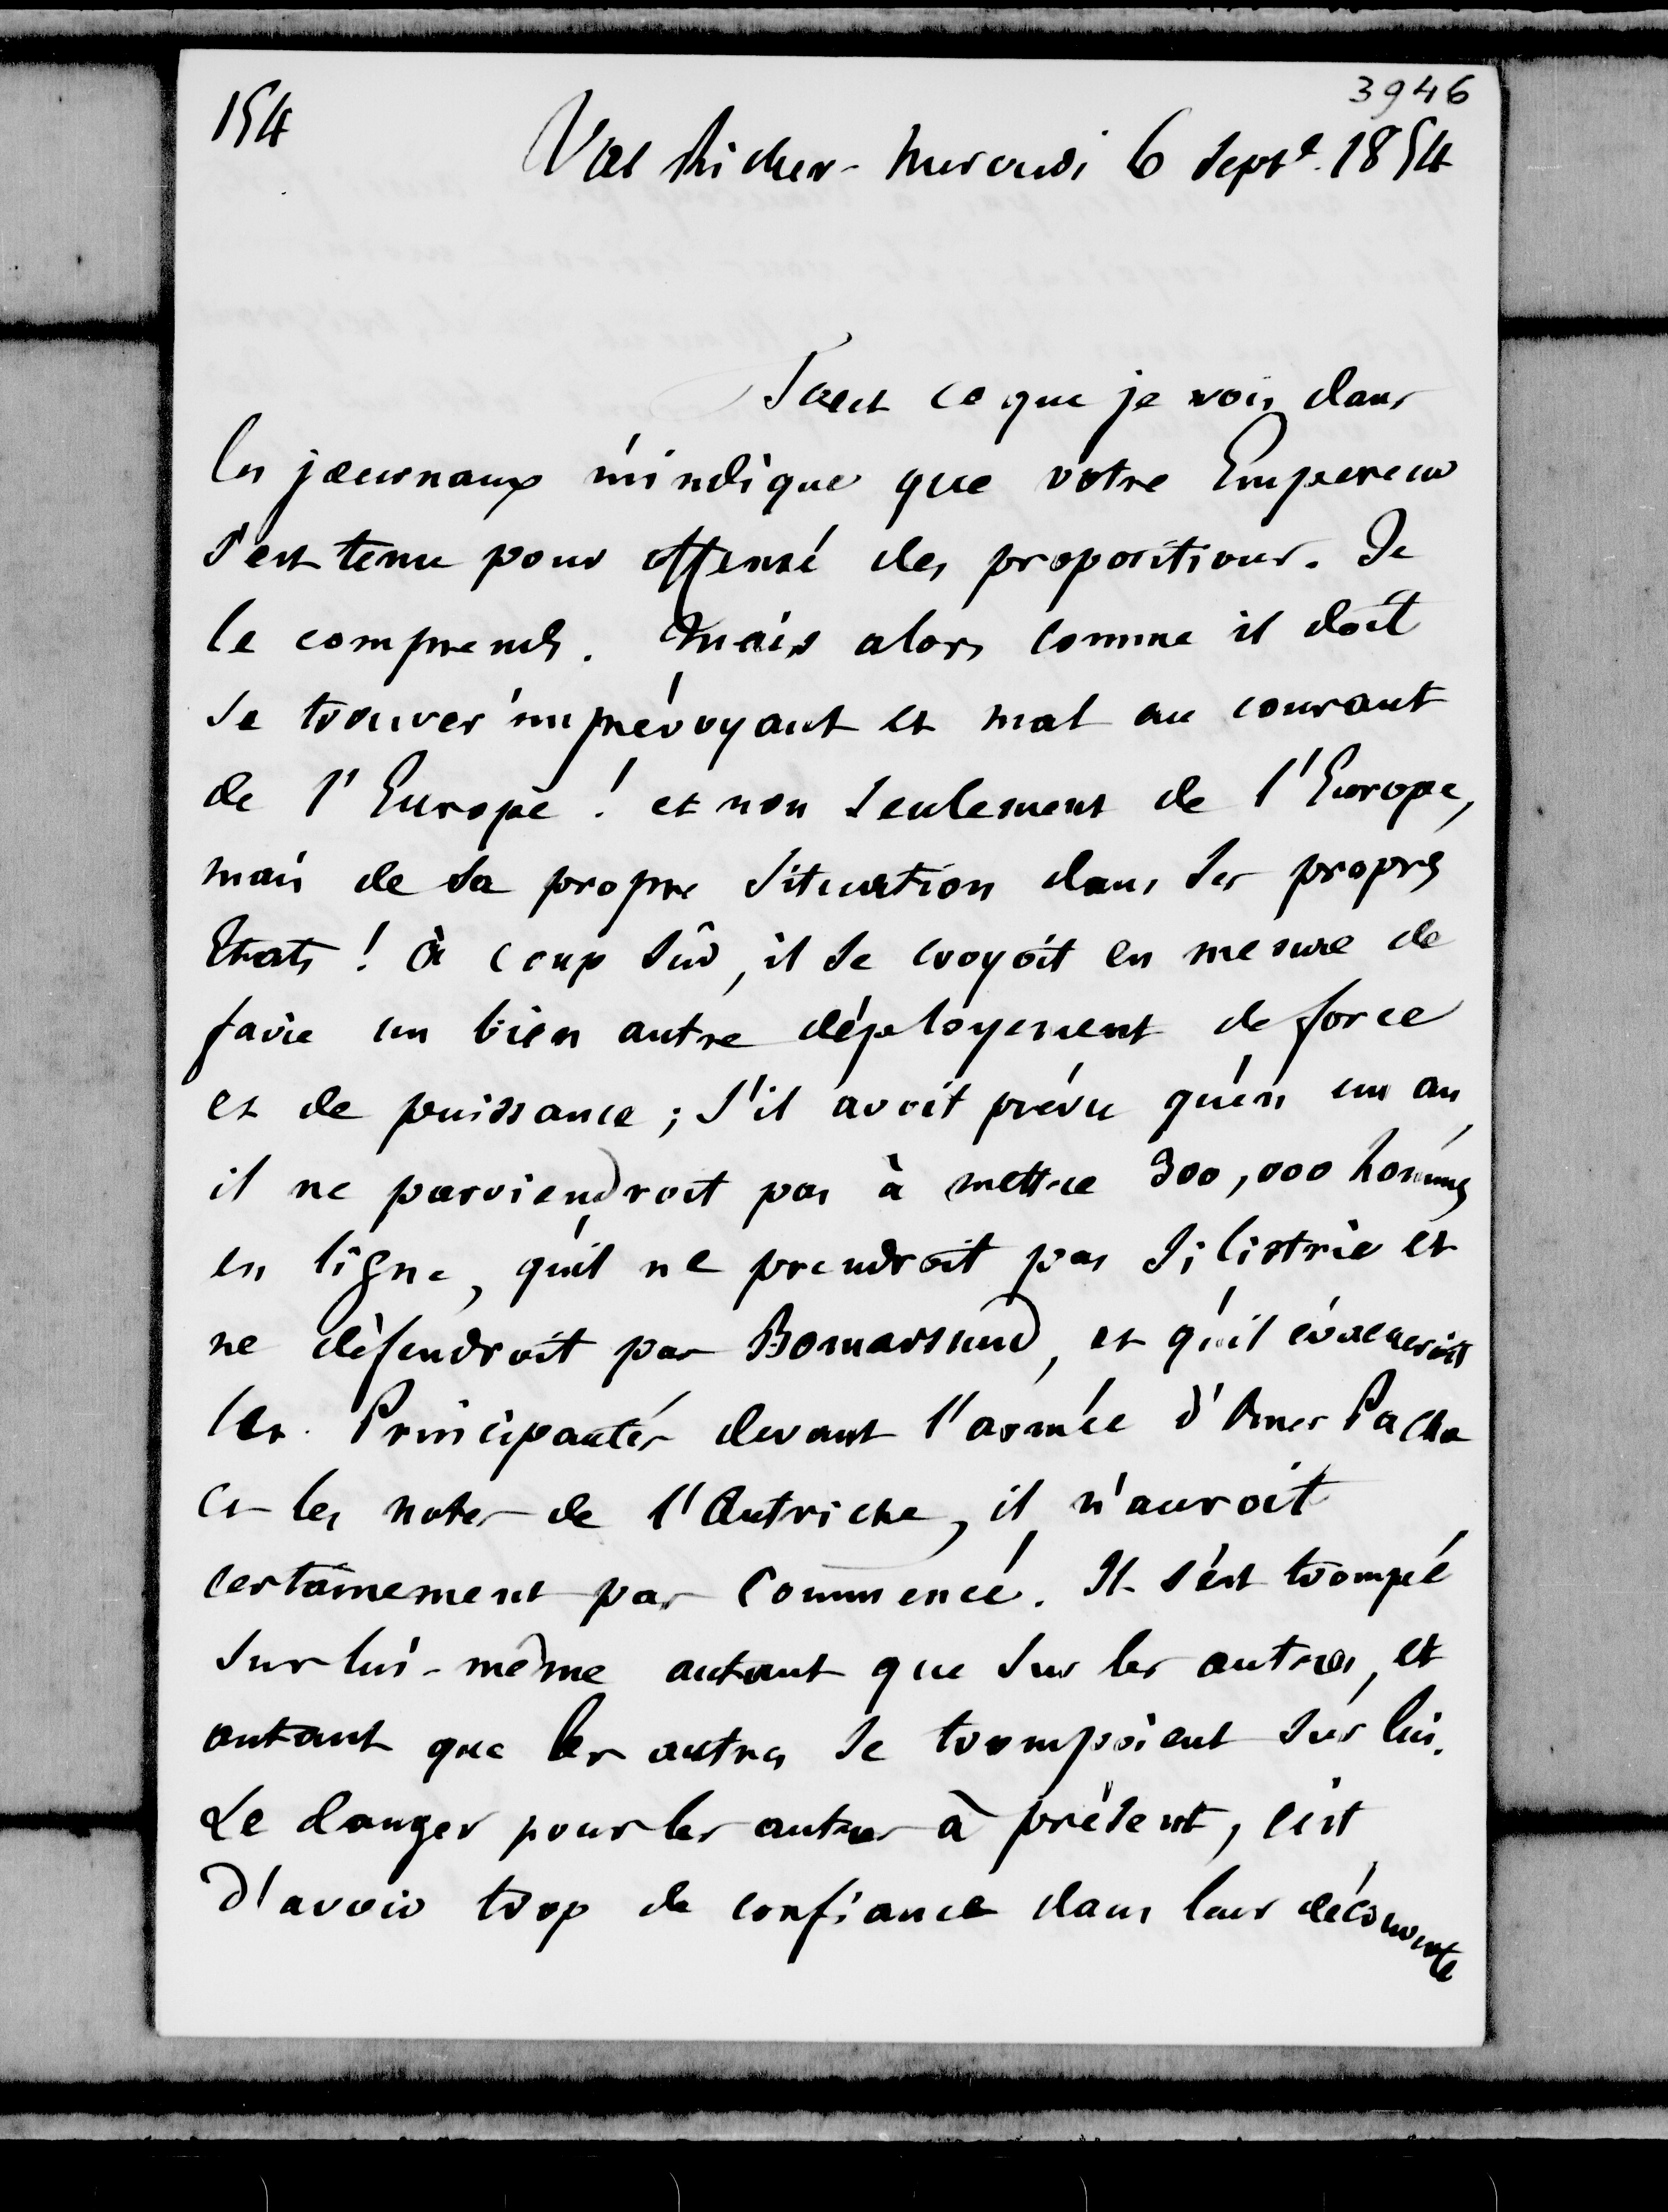 3946
154
Val Richer - Mercredi 6 Septe. 1854
Tout ce que je vois dans
les journaux m'indique que votre Empereur
s'est tenu pour offensé des propositions. Je
le comprends. Mais alors comme il doit
se trouver imprévoyant et mal au courant
de l'Europe ! et non seulement de l'Europe,
mais de sa propre situation dans ses propres
Etats ! à coup sûr, il se croyoit en mesure de
faire un bien autre déployement de force
et de puissance ; s'il avoit prévu qu'en un an,
il ne parviendroit pas à mettre 300,000 hommes
en ligne, qu'il ne prendroit pas Silistrie et
ne défendroit pas Bomarsund, et qu'il évacueroit
les Principautés devant l'armée d'Omer Pacha
et les notes de l'Autriche, il n'auroit
certainement pas commencé. Il s'est trompé
sur lui-même autant que sur les autres, et
autant que les autres se trompoient sur lui.
Le danger pour les autres à présent, c'est
d'avoir trop de confiance dans leur découverte